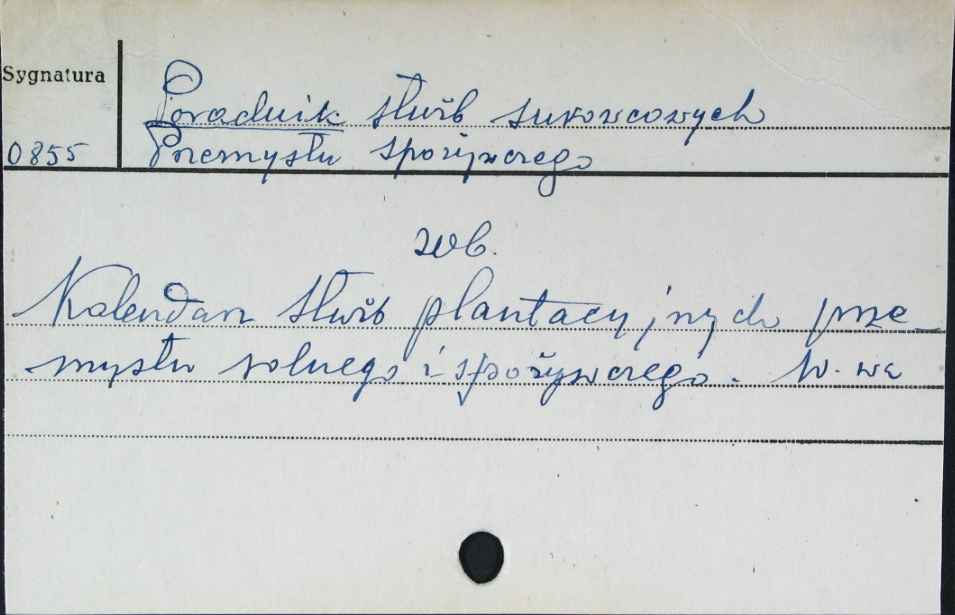 Sygnatura
Poradnik służb surowcowych
0855 Przemysłu spożywczego
zob.
Kalendarz służb plantacyjnych prze_
mysłu rolnego i spożywczego. W-wa